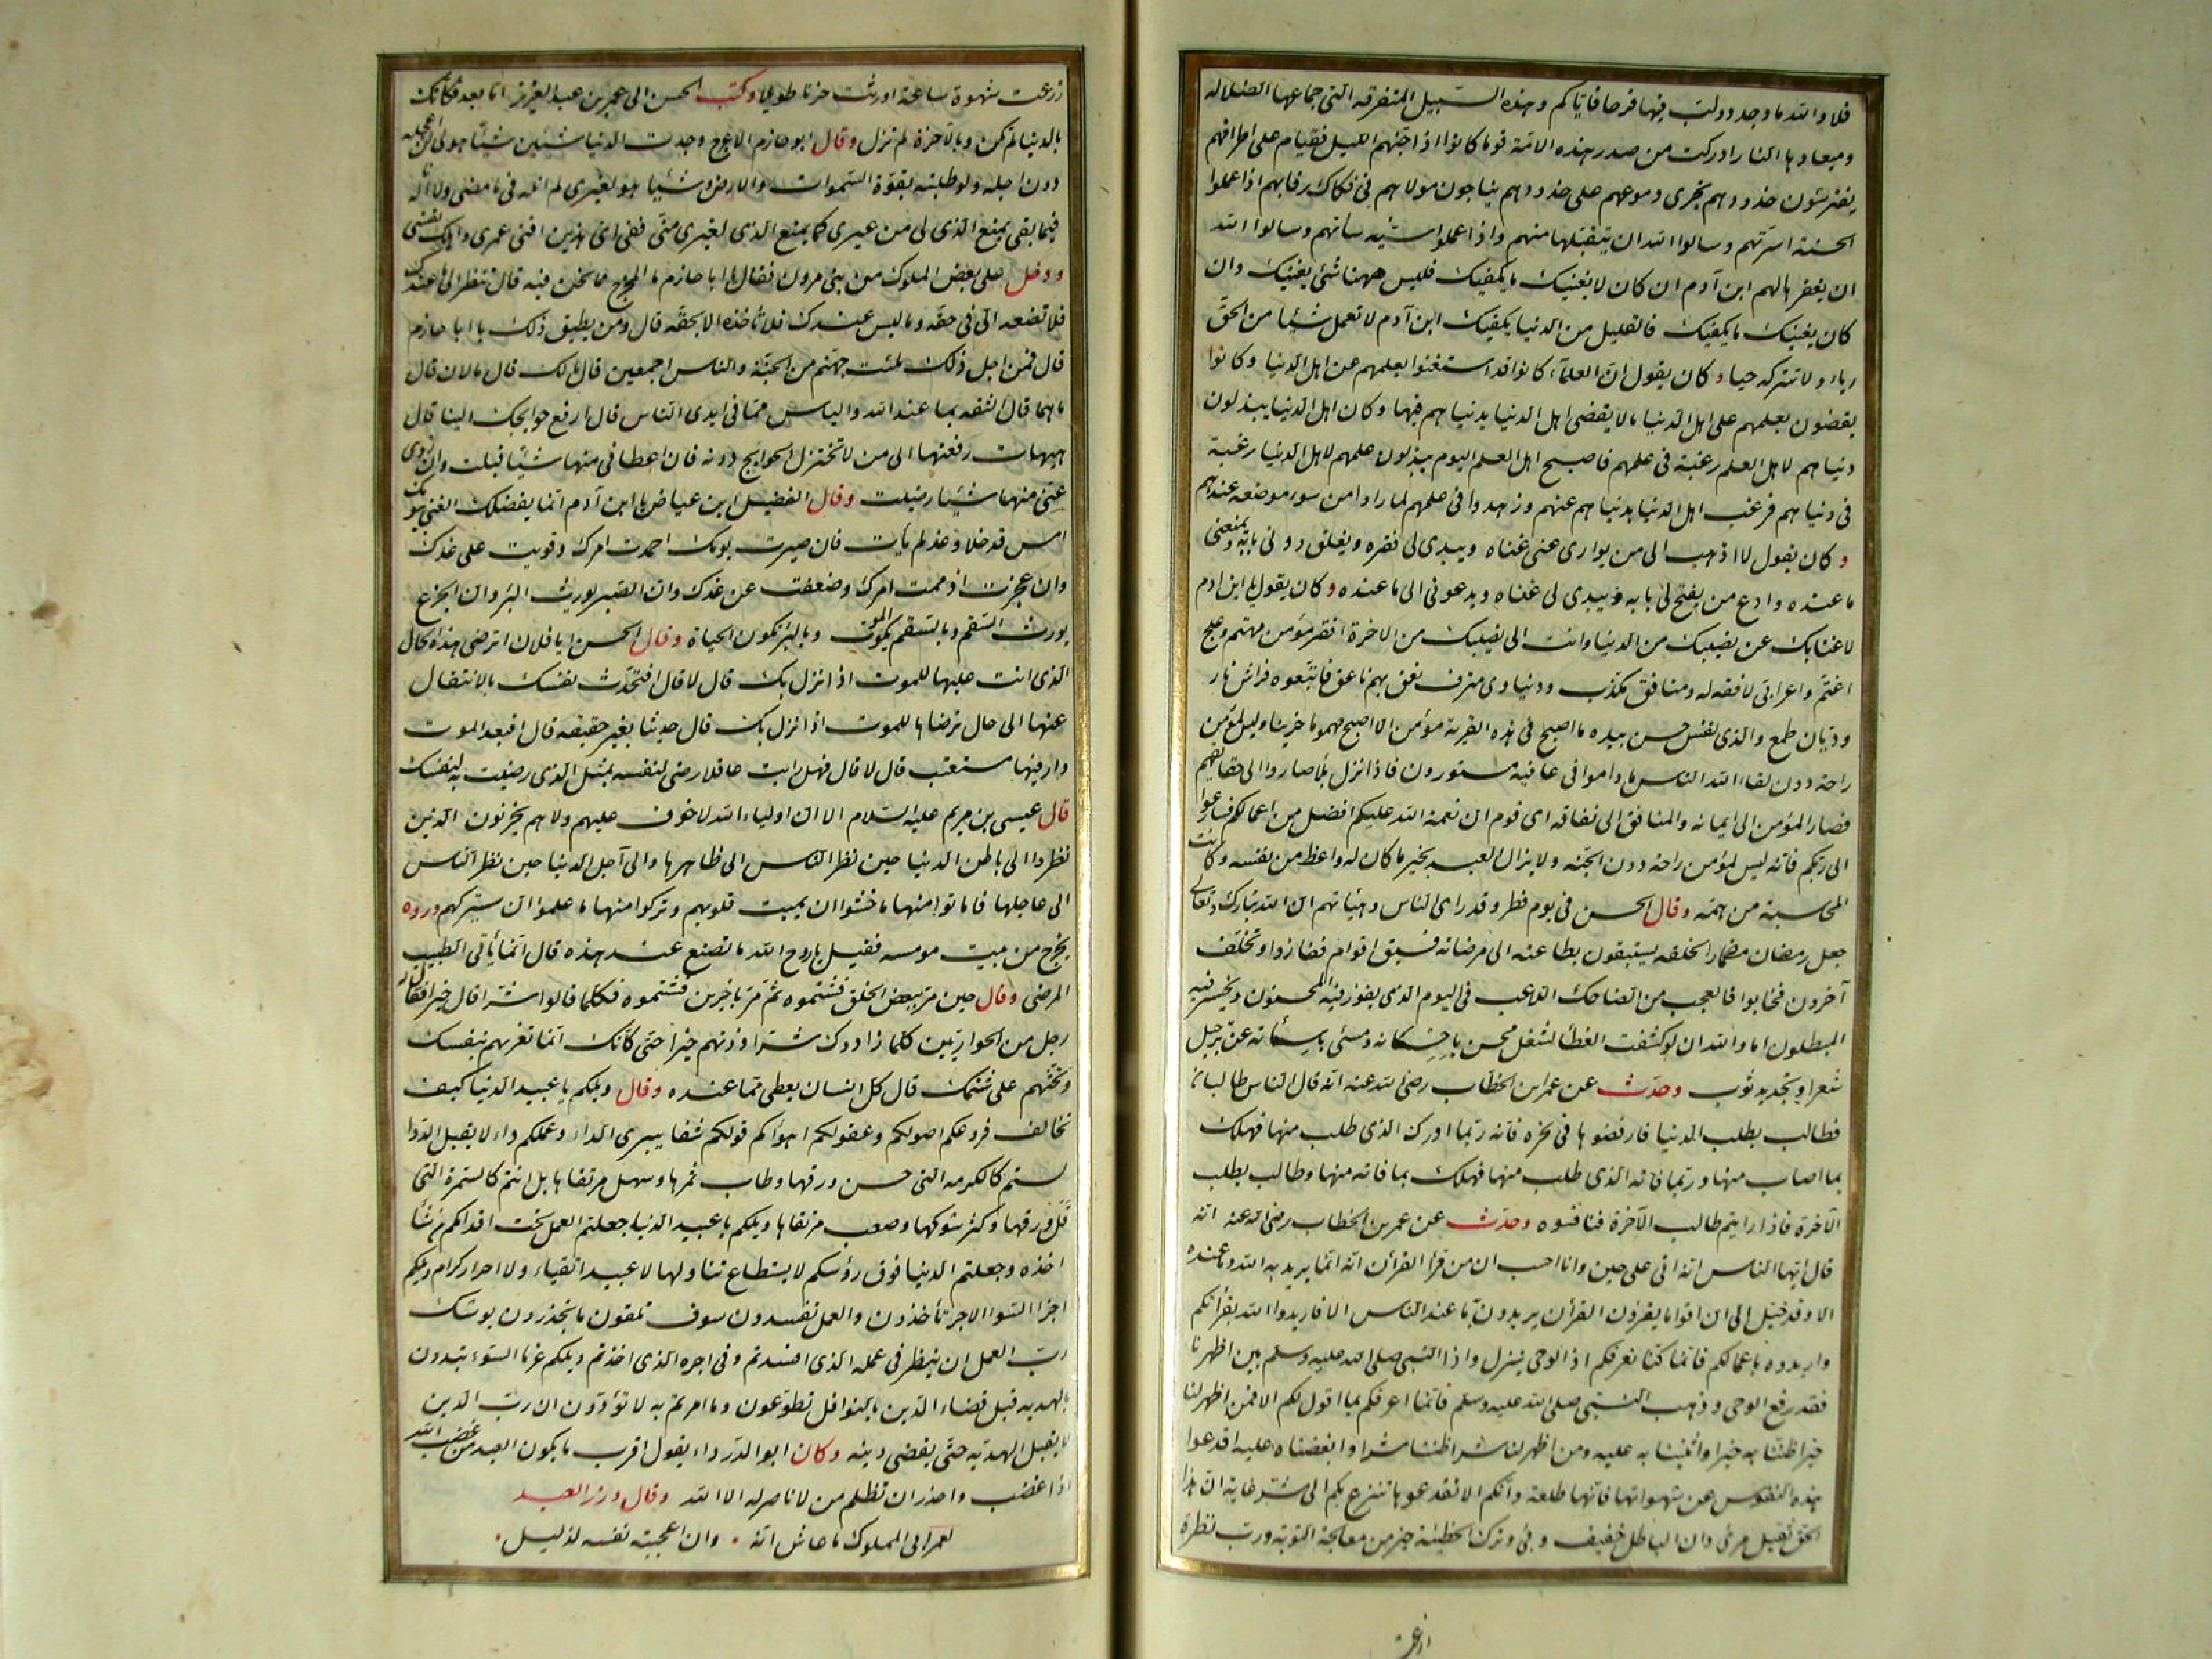 فلا والله ما وجد دولت فيها فرحا فاياكم وهذه السبيل المتفرقه التى جماعها الضلاله
وميعادها النار ادركت من صدر هذه الامّة قوما كانوا اذا اجنّهم الليل فقيام على اطرافهم
يفترشون خدودهم تجرى دموعهم على خدودهم يناجون مولاهم فى فكاك رقابهم اذا عملوا
الحسنة اسرّتهم وسالوا الله ان يتقبّلها منهم واذا عملوا سيّئه ساءتهم وسالوا الله
ان يغفرها لهم ابن آدم ان كان لا يغنيك ما يكفيك فليس ههنا شئ يغنيك وان
كان يغنيك ما يكفيك فالقليل من الدنيا يكفيك ابن آدم لا تعمل شيئا من الحقّ
رياء ولا تتركه حياء وكان يقول انّ العلماء كانوا قد استغنوا بعلمهم عن اهل الدنيا وكانوا
يقضون بعلمهم على اهل الدنيا ما لا يقضى اهل الدنيا بدنياهم فيها وكان اهل الدنيا يبذلون
دنياهم لاهل العلم رغبة فى علمهم فاصبح اهل العلم اليوم يبذلون علمهم لاهل الدنيا رغبة
فى دنياهم فرغب اهل الدنيا بدنياهم عنهم وزهدوا فى علمهم لما راوا من سوء موضعه عندهم
وكان يقول لا اذهب الى من يوارى عنى غناه ويبدى لى فقره ويغلق دونى بابه ويمنعنى
ما عنده وادع من يفتح لى بابه ويبدى لى غناه ويدعونى الى ما عنده وكان يقول يا ابن ادم
لا غنا بك عن نصيبك من الدنيا وانت الى نصيبك من الاخرة افقر مؤمن مهتم وعلج
اغتم واعرابى لا فقه له ومنافق مكذّب ودنياوى مترف نعق بهم ناعق فاتبعوه فراش نار
وذبّان طمع والذى نفس حسن بيده ما اصبح فى هذه القرية مؤمن الا اصبح مهموما حزينا وليس لمؤمن
راحة دون لقاء الله الناس ما داموا فى عافية مستورون فاذا نزل بلاء صاروا الى حقايقهم
فصار المؤمن الى ايمانه والمنافق الى نفاقه اى قوم ان نعمة الله عليكم افضل من اعمالكم فسارعوا
الى ربّكم فانّه ليس لمؤمن راحة دون الجنّه ولا يزال العبد بخير ما كان له واعظ من نفسه وكانت
المحاسبة من همّه وقال الحسن فى يوم فطر وقد راى الناس وهيئاتهم ان الله تبارك وتعالى
جعل رمضان مضمارا لخلقه يستبقون بطاعته الى مرضاته فسبق اقوام ففازوا وتخلّف
آخرون فخابوا فالعجب من الضاحك اللاعب فى اليوم الذى يفوز فيه المحسنون ويخسر فيه
المبطلون اما والله ان لو كشفت الغطاء لشغل محسن باحسانه ومسئى باسائته عن ترجيل
شعر او تجديد ثوب وحدّث عن عمر ابن الخطّاب رضى الله عنه انه قال الناس طالبان
فطالب يطلب الدنيا فارفضوها فى نحره فانّه ربّما ادرك الذى طلب منها فهلك
بما اصاب منها وربّما فاته الذى طلب منها فهلك بما فاته منها وطالب يطلب
الآخرة فاذا رايتم طالب الآخرة فنافسوه وحدّث عن عمر بن الخطاب رضى الله عنه انّه
قال ايّها الناس انّه اتى علىّ حين وانا احسب ان من قرأ القرآن انّه انّما يريد به الله وما عنده
الا وقد خيّل الىّ ان اقواما يقرؤن القرآن يريدون به ما عند الناس الا فاريدوا الله بقرأتكم
واريدوه باعمالكم فانّما كنّا نعرفكم اذ الوحى ينزل واذ النبى صلى الله عليه وسلم بين اظهرنا
فقد رفع الوحى وذهب النبى صلى الله عليه وسلم فانّما اعرفكم بما اقول لكم الا فمن اظهر لنا
خيرا ظننّا به خيرا واثنينا به عليه ومن اظهر لنا شرا ظننا به شرا وابغضناه عليه اقدعوا
هذه النفوس عن شهواتها فانّها طلعة وانّكم الا تقدعوها تنزع بكم الى شرّ غاية انّ هذا
الحق ثقيل مرئ وان الباطل خفيف وبئ وترك الخطيئة خير من معالجة التوبة وربّ نظرة
زرعت شهوة وشهوة ساعة اورثت حزنا طويلا وكتب الحسن الى عمر بن عبد العزيز اما بعد فكانّك
بالدنيا لم تكن وبالآخرة لم تزل وقال ابو حازم الاعرج وجدت الدنيا شيئين شيئا هو لى لن اعجله
دون اجله ولو طلبته بقوّة السّموات والارض وشيئا هو لغيرى لم انله فيما مضى ولا اناله
فيما بقى يمنع الذى لى من غيرى كما يمنع الذى لغيرى منّى ففى اىّ هذين افنى عمرى واهلك نفسى
ودخل على بعض الملوك من بنى مروان فقال يا ابا حازم ما المخرج مما نحن فيه قال تنظر الى ما عندك
فلا تضعه الّا فى حقّه وما ليس عندك فلا تأخذه الا بحقّه قال ومن يطيق ذلك يا ابا حازم
قال فمن اجل ذلك ملئت جهنّم من الجنّة والناس اجمعين قال ما لك قال مالان قال
ما هما قال الثقه بما عند الله والياس ممّا فى ايدى الناس قال ارفع حوايجك الينا قال
هيهات رفعتها الى من لا تختزل الحوايج دونه فان اعطانى منها شيئا قبلت وان زوى
عنّى منها شيئا رضيت وقال الفضيل ابن عياض يا ابن آدم انّما يفضلك الغنى بيومك
امس قد خلا وغد لم يأت فان صبرت يومك احمدت امرك وقويت على غدك
وان عجزت اذممت امرك وضعفت عن غدك وان الصبر يورث البرء وان الجزع
يورث السقم وبالسقم يكون الموت وبالبرء يكون الحياة وقال الحسن ايا فلان اترضى هذه الحال
الذى انت عليها للموت اذا نزل بك قال لا قال افتحدّث نفسك بالانتقال
عنها الى حال ترضاها للموت اذا نزل بك قال حديثا بغير حقيقه قال افبعد الموت
دار فيها مستعتب قال لا قال فهل رايت عاقلا رضى لنفسه بمثل الذى رضيت به لنفسك
قال عيسى بن مريم عليه السّلام الا ان اولياء الله لا خوف عليهم ولا هم يحزنون الّذين
نظروا الى باطن الدنيا حين نظر النّاس الى ظاهرها والى آجل الدنيا حين نظر الناس
الى عاجلها فاماتوا منها ما خشوا ان يميت قلوبهم وتركوا منها ما علموا ان سيتركهم وراوه
يخرج من بيت مومسه فقيل يا روح الله ما تصنع عند هذه قال انّما يأتى الطبيب
المرضى وقال حين مرّ ببعض الخلق فشتموه ثمّ مرّ باخرين فشتموه فكلّما قالوا شرّا قال خيرا فقال له
رجل من الحواريّين كلّما زادوك شرّا زدتهم خيرا حتى كانّك انّما تغريهم بنفسك
وتحثّهم على شتمك قال كلّ انسان يعطى ممّا عنده وقال ويلكم يا عبيد الدنيا كيف
تخالف فروعكم اصولكم وعقولكم اهواكم قولكم شفا يبرى الداء وعملكم داء لا يقبل الدوا
لستم كالكرمه التى حسن ورقها وطاب ثمرها وسهل مرتقاها بل انتم كالسمرة التى
قلّ ورقها وكثر شوكها وصعب مرتقاها ويلكم يا عبيد الدنيا جعلتم العمل تحت اقدامكم من شاء
اخذه وجعلتم الدنيا فوق رؤسكم لا يستطاع تناولها لا عبيد اتقياء ولا احرار كرام ويلكم
اجراء السوء الاجر تأخذون والعمل تفسدون سوف تلقون ما تحذرون يوشك
ربّ العمل ان ينظر فى عمله الذى افسدتم وفى اجره الذى اخذتم ويلكم غرماء السوء تبدون
بالهديه قبل قضاء الدّين بالنوافل تطوّعون وما امرتم به لا تؤدّون ان ربّ الدّين
لا يقبل الهديّه حتّى يقضى دينه وكان ابو الدّرداء يقول اقرب ما يكون العبد من غضب الله
اذا غضب واحذر ان تظلم من لا ناصر له الا الله وقال وزر العبد
لعمرابى المملوك ما عاش انّه . وان اعجبته نفسه لذليل .
زرعت